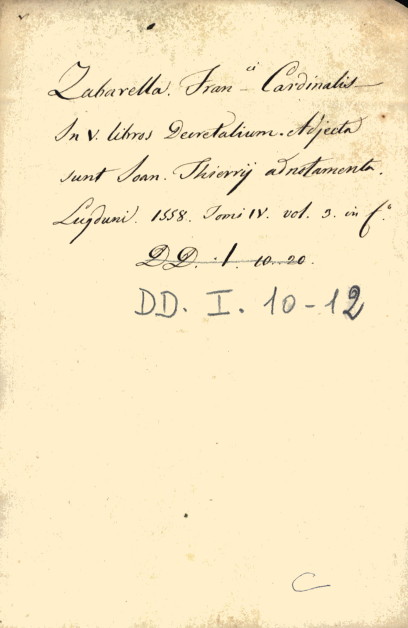 Zabarella. Fran.ci Cardinalis
In V. libros Decretalium. Adjecta
sunt Joan. Thierrij adnotamenta.
Lugduni. 1558. Tomi IV. vol. 3. in f.o
DD. I. 10-20.
DD. I. 10-12
C